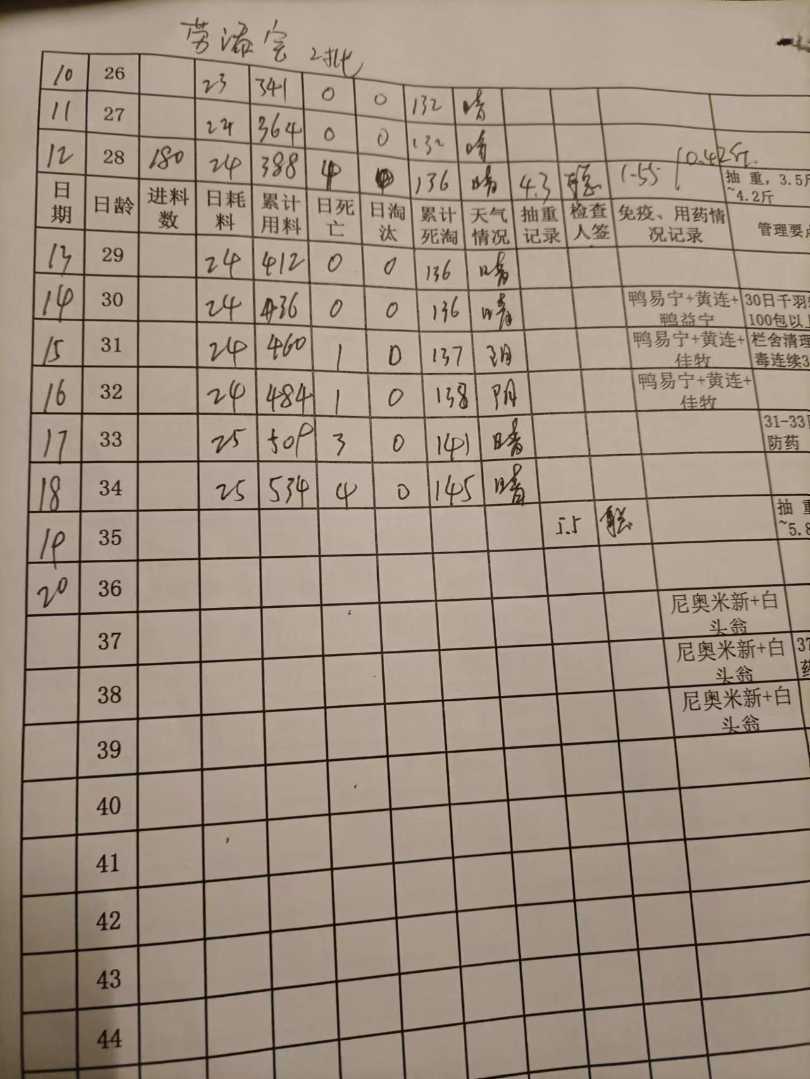 2批
10 26 23 341 0 0 132 晴
11 27 24 364 0 0 132 晴
12 28 180 24 388 4 0 136 晴 4.3 1.55 10.42斤 抽 重，3.5斤~4.2斤
日期 日龄 进料数 日耗料 累计用料 日死亡 日淘汰 累计死淘 天气情况 抽重记录 检查人签 免疫、用药情况记录 管理要点
13 29 24 412 0 0 136 晴
14 30 24 436 0 0 136 晴 鸭易宁+黄连+鸭益宁 30日千羽 100包以上
15 31 24 460 1 0 137 阴 鸭易宁+黄连+佳牧 栏舍清理 毒连续3
16 32 24 484 1 0 138 阴 鸭易宁+黄连+佳牧
17 33 25 509 3 0 141 晴 31-33日 防药
18 34 25 534 4 0 145 晴
19 35 5.5 抽 重 ~5.8
20 36
37 尼奥米新+白头翁
38 尼奥米新+白头翁 37
39 尼奥米新+白头翁
40
41
42
43
44